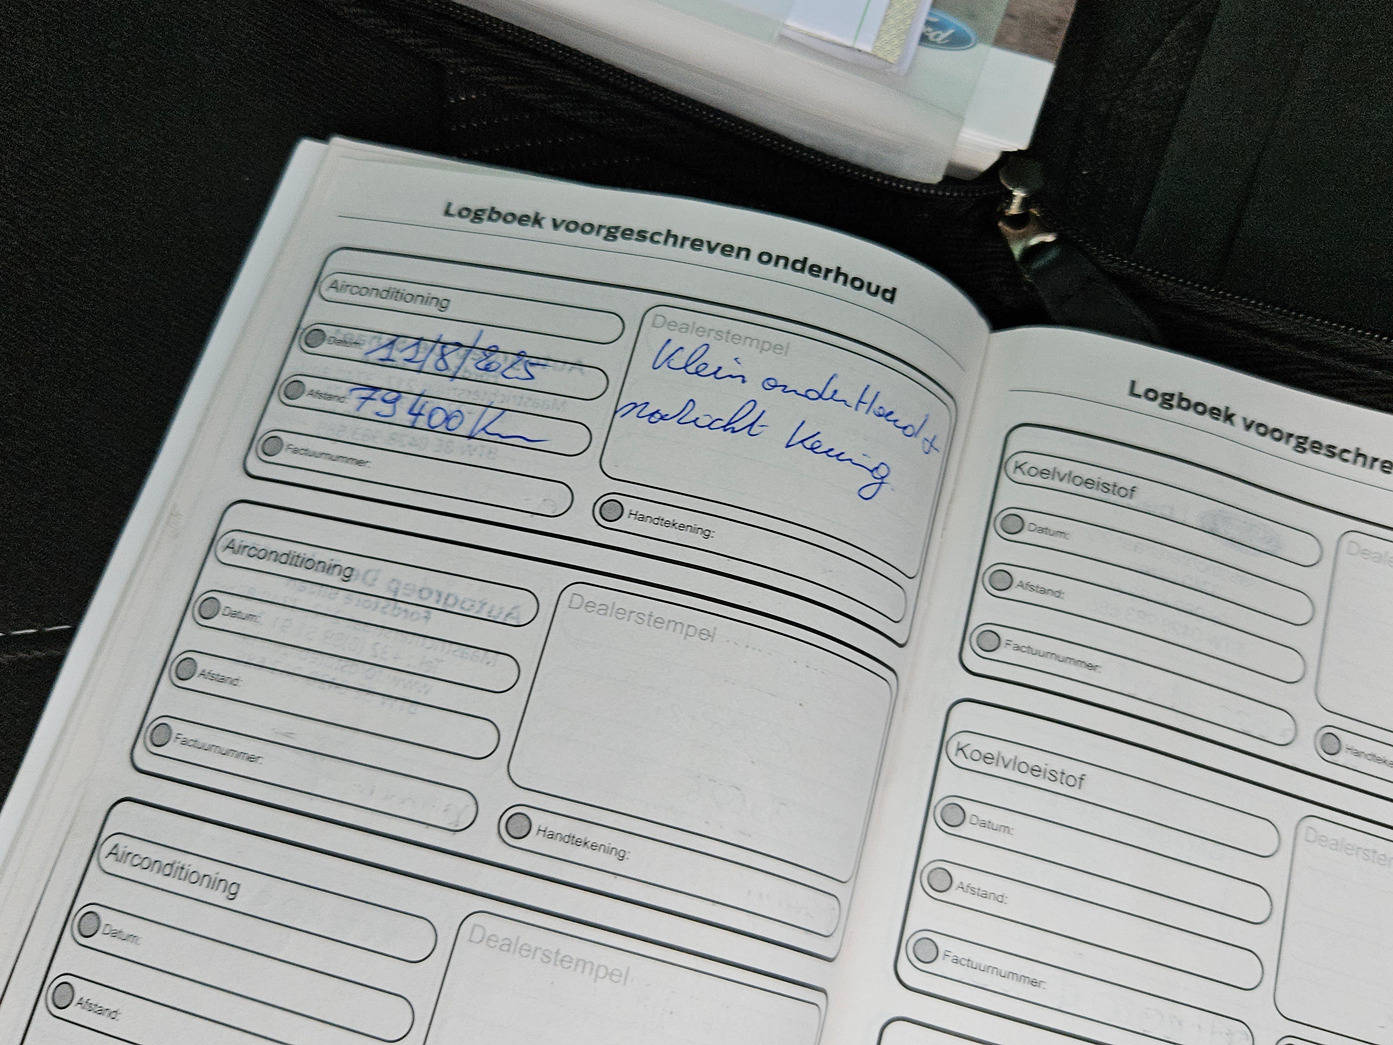 Ford
Logboek voorgeschreven onderhoud
Airconditioning
Datum: 11/8/2025
Afstand: 79400 Km
Factuurnummer:
Dealerstempel
Klein onderHoud +
Keuring
Handtekening:
Airconditioning
Datum:
Afstand:
Factuurnummer:
Dealerstempel
Handtekening:
Airconditioning
Datum:
Afstand:
Dealerstempel
Logboek voorgeschre
Koelvloeistof
Datum:
Afstand:
Factuurnummer:
Deale
Handteke
Koelvloeistof
Datum:
Afstand:
Factuurnummer:
Dealerste